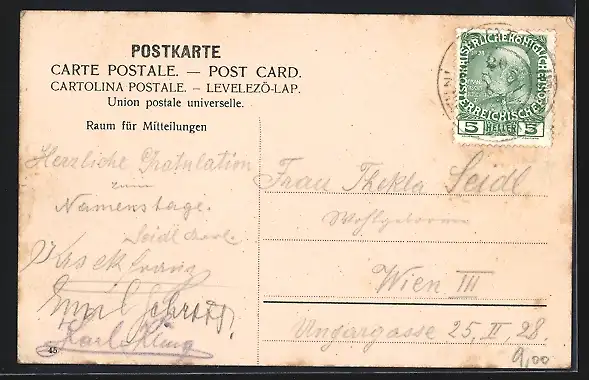 POSTKARTE
CARTE POSTALE. — POST CARD.
CARTOLINA POSTALE. – LEVELEZŐ-LAP.
Union postale universelle.
Raum für Mitteilungen
Herzliche Gratulation
zum
Namenstage.
Seidl
Karl Kling
45
KAISERLICHE KÖNIGLICHE ÖSTERREICHISCHE POST
5 HELLER 5
Frau Thekla Seidl
Wohlgeboren
Wien III
Ungargasse 25, II, 28.
9,00